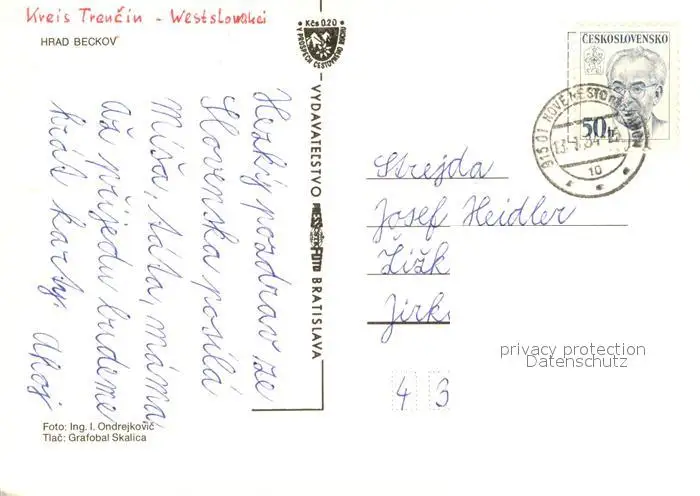 Kreis Trenčin - Westslowakei
HRAD BECKOV
Kčs 0,20
V PROSPECH CESTOVNÉHO RUCHU
VYDAVATEĽSTVO
PRESSFOTO
BRATISLAVA
ČESKOSLOVENSKO
50h
915 01 NOVÉ MESTO NAD VÁHOM
10
Hezký pozdrav ze
Slovenska posílá
Míša, táta, máma
Až přijedu budeme
hrát karty. Ahoj
Strejda
Josef Heidler
Žižk
Jirk
4 3
privacy protection
Datenschutz
Foto: Ing. I. Ondrejkovič
Tlač: Grafobal Skalica